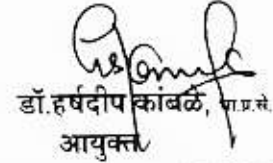 डॉ.हर्षदीप कांबळे, भा.प्र.से.
आयुक्त